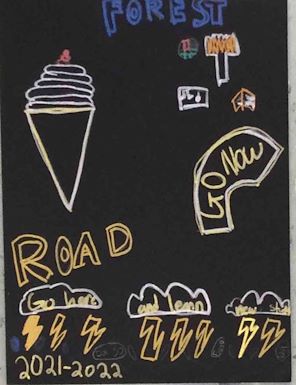 FOREST
GO NOW
ROAD
Go here and learn new
2021-2022